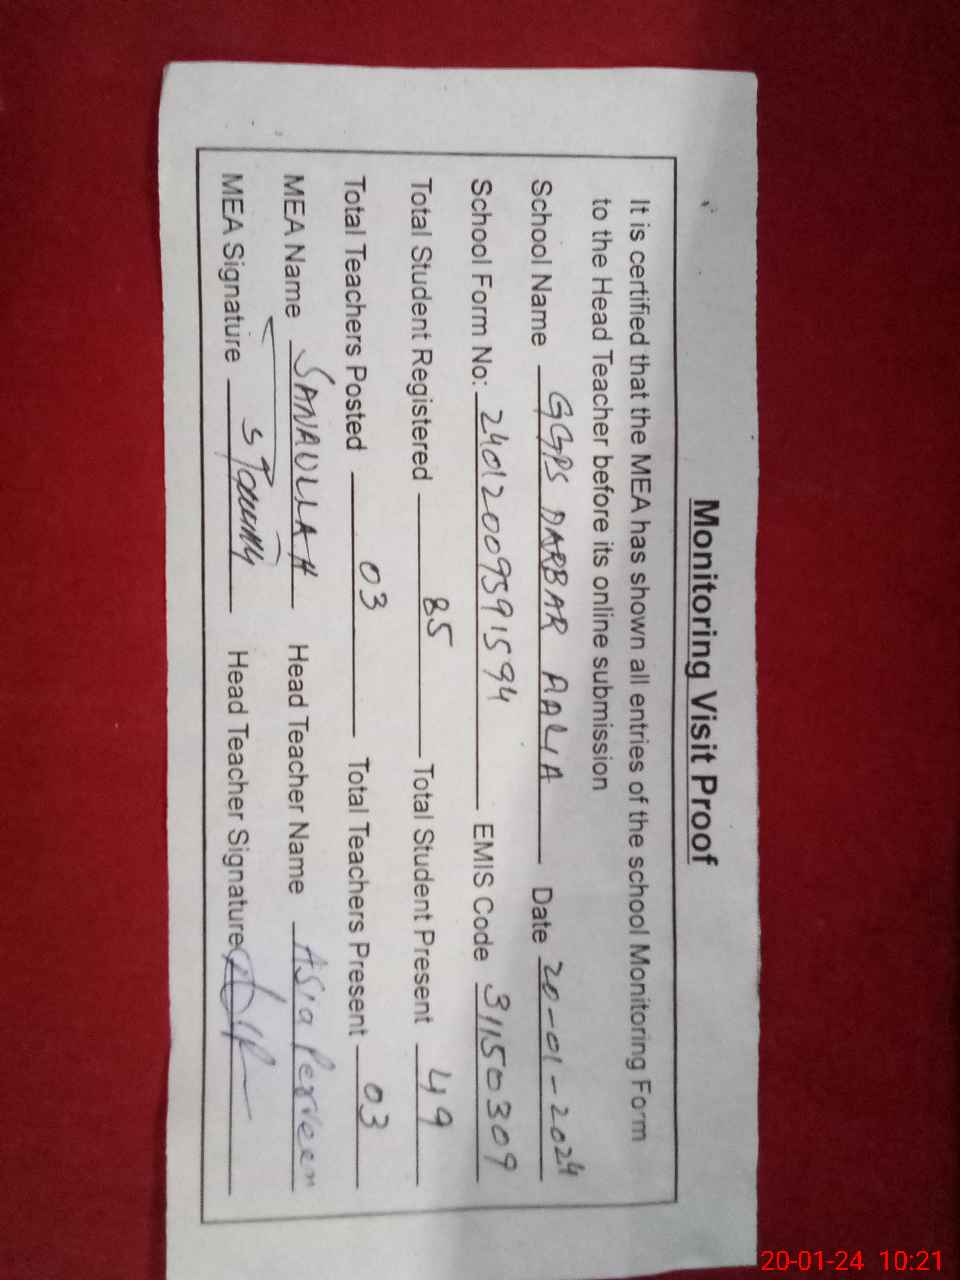 Monitoring Visit Proof
It is certified that the MEA has shown all entries of the school Monitoring Form
to the Head Teacher before its online submission
School Name GGPS DARBAR AALIA Date 20-01-2024
School Form No: 24012009591594 EMIS Code 31150309
Total Student Registered 85 Total Student Present 49
Total Teachers Posted 03 Total Teachers Present 03
MEA Name SANAULLAH Head Teacher Name Asia Perveen
MEA Signature Head Teacher Signature
20-01-24 10:21